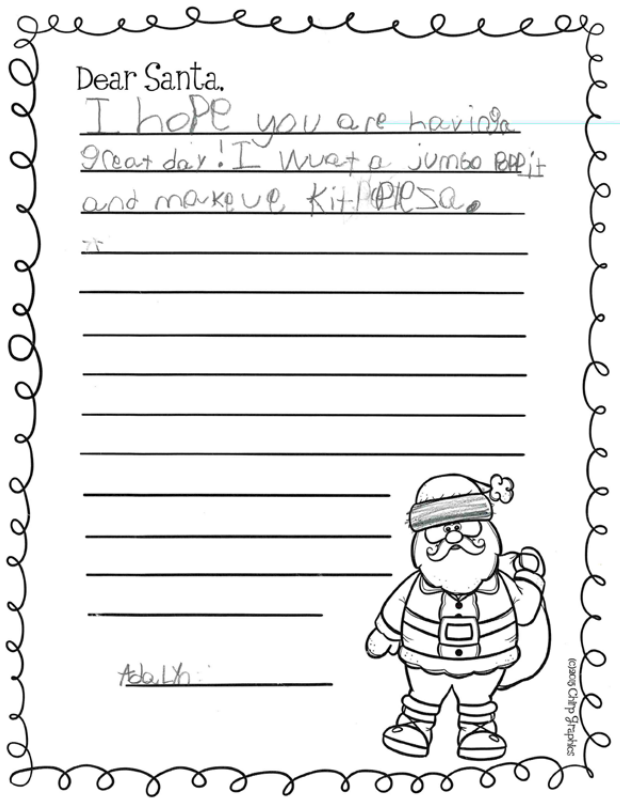 Dear Santa,
I hope you are having a
great day! I wuat a jumbo poppit
and makeue kit pleza.
AdaLyn
(c)2015 Chirp Graphics